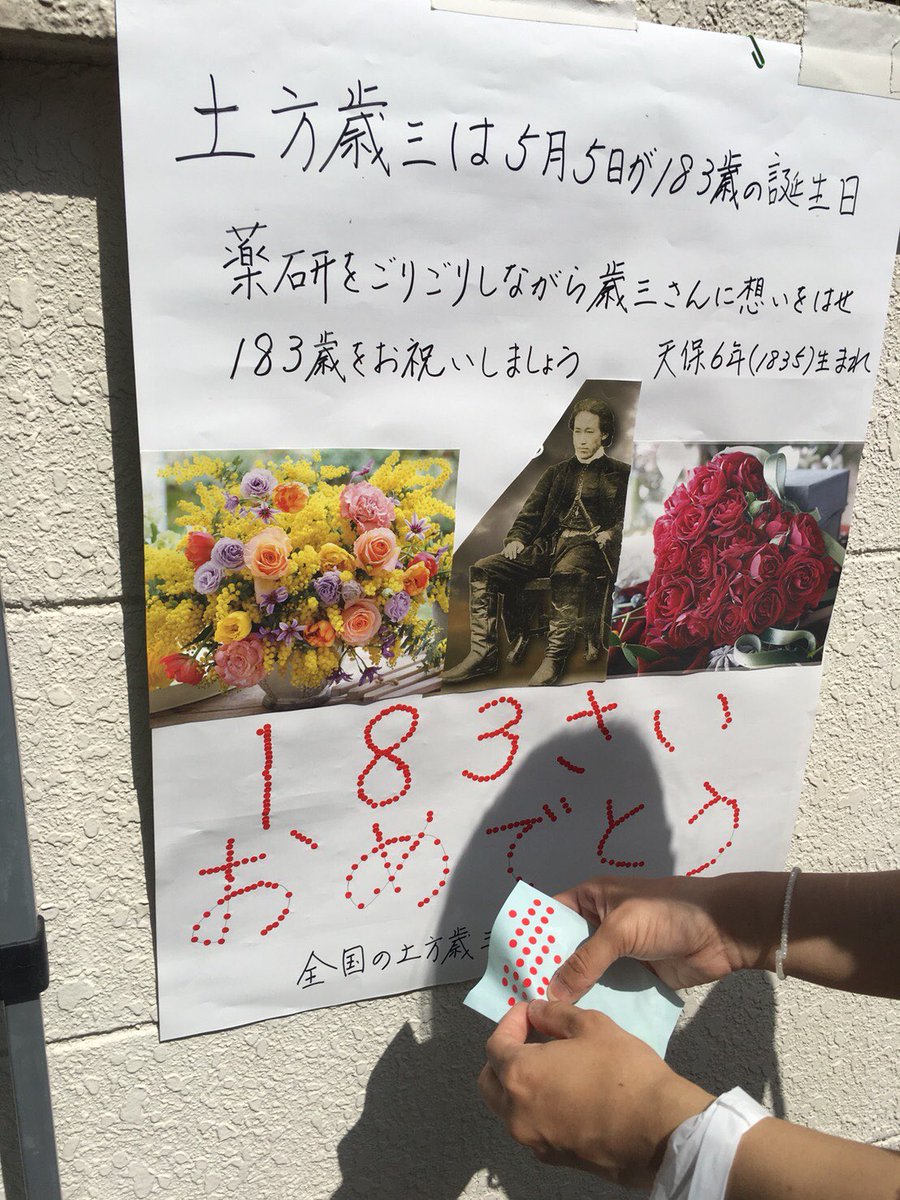 土方歳三は5月5日が183歳の誕生日
薬研をごりごりしながら歳三さんに想いをはせ
183歳をお祝いしましょう 天保6年(1835)生まれ
183さい
おめでとう
全国の土方歳三